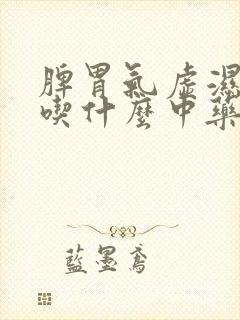 脾胃氣虛濕
喫什麼中藥
藍墨鳶